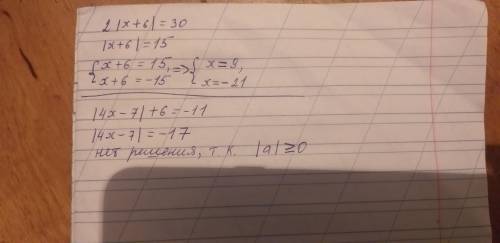 2|x+6|=30
|x+6|=15
{x+6=15, => {x=9,
{x+6=-15 {x=-21
|4x-7|+6=-11
|4x-7|=-17
нет решения, т.к. |a|≥0